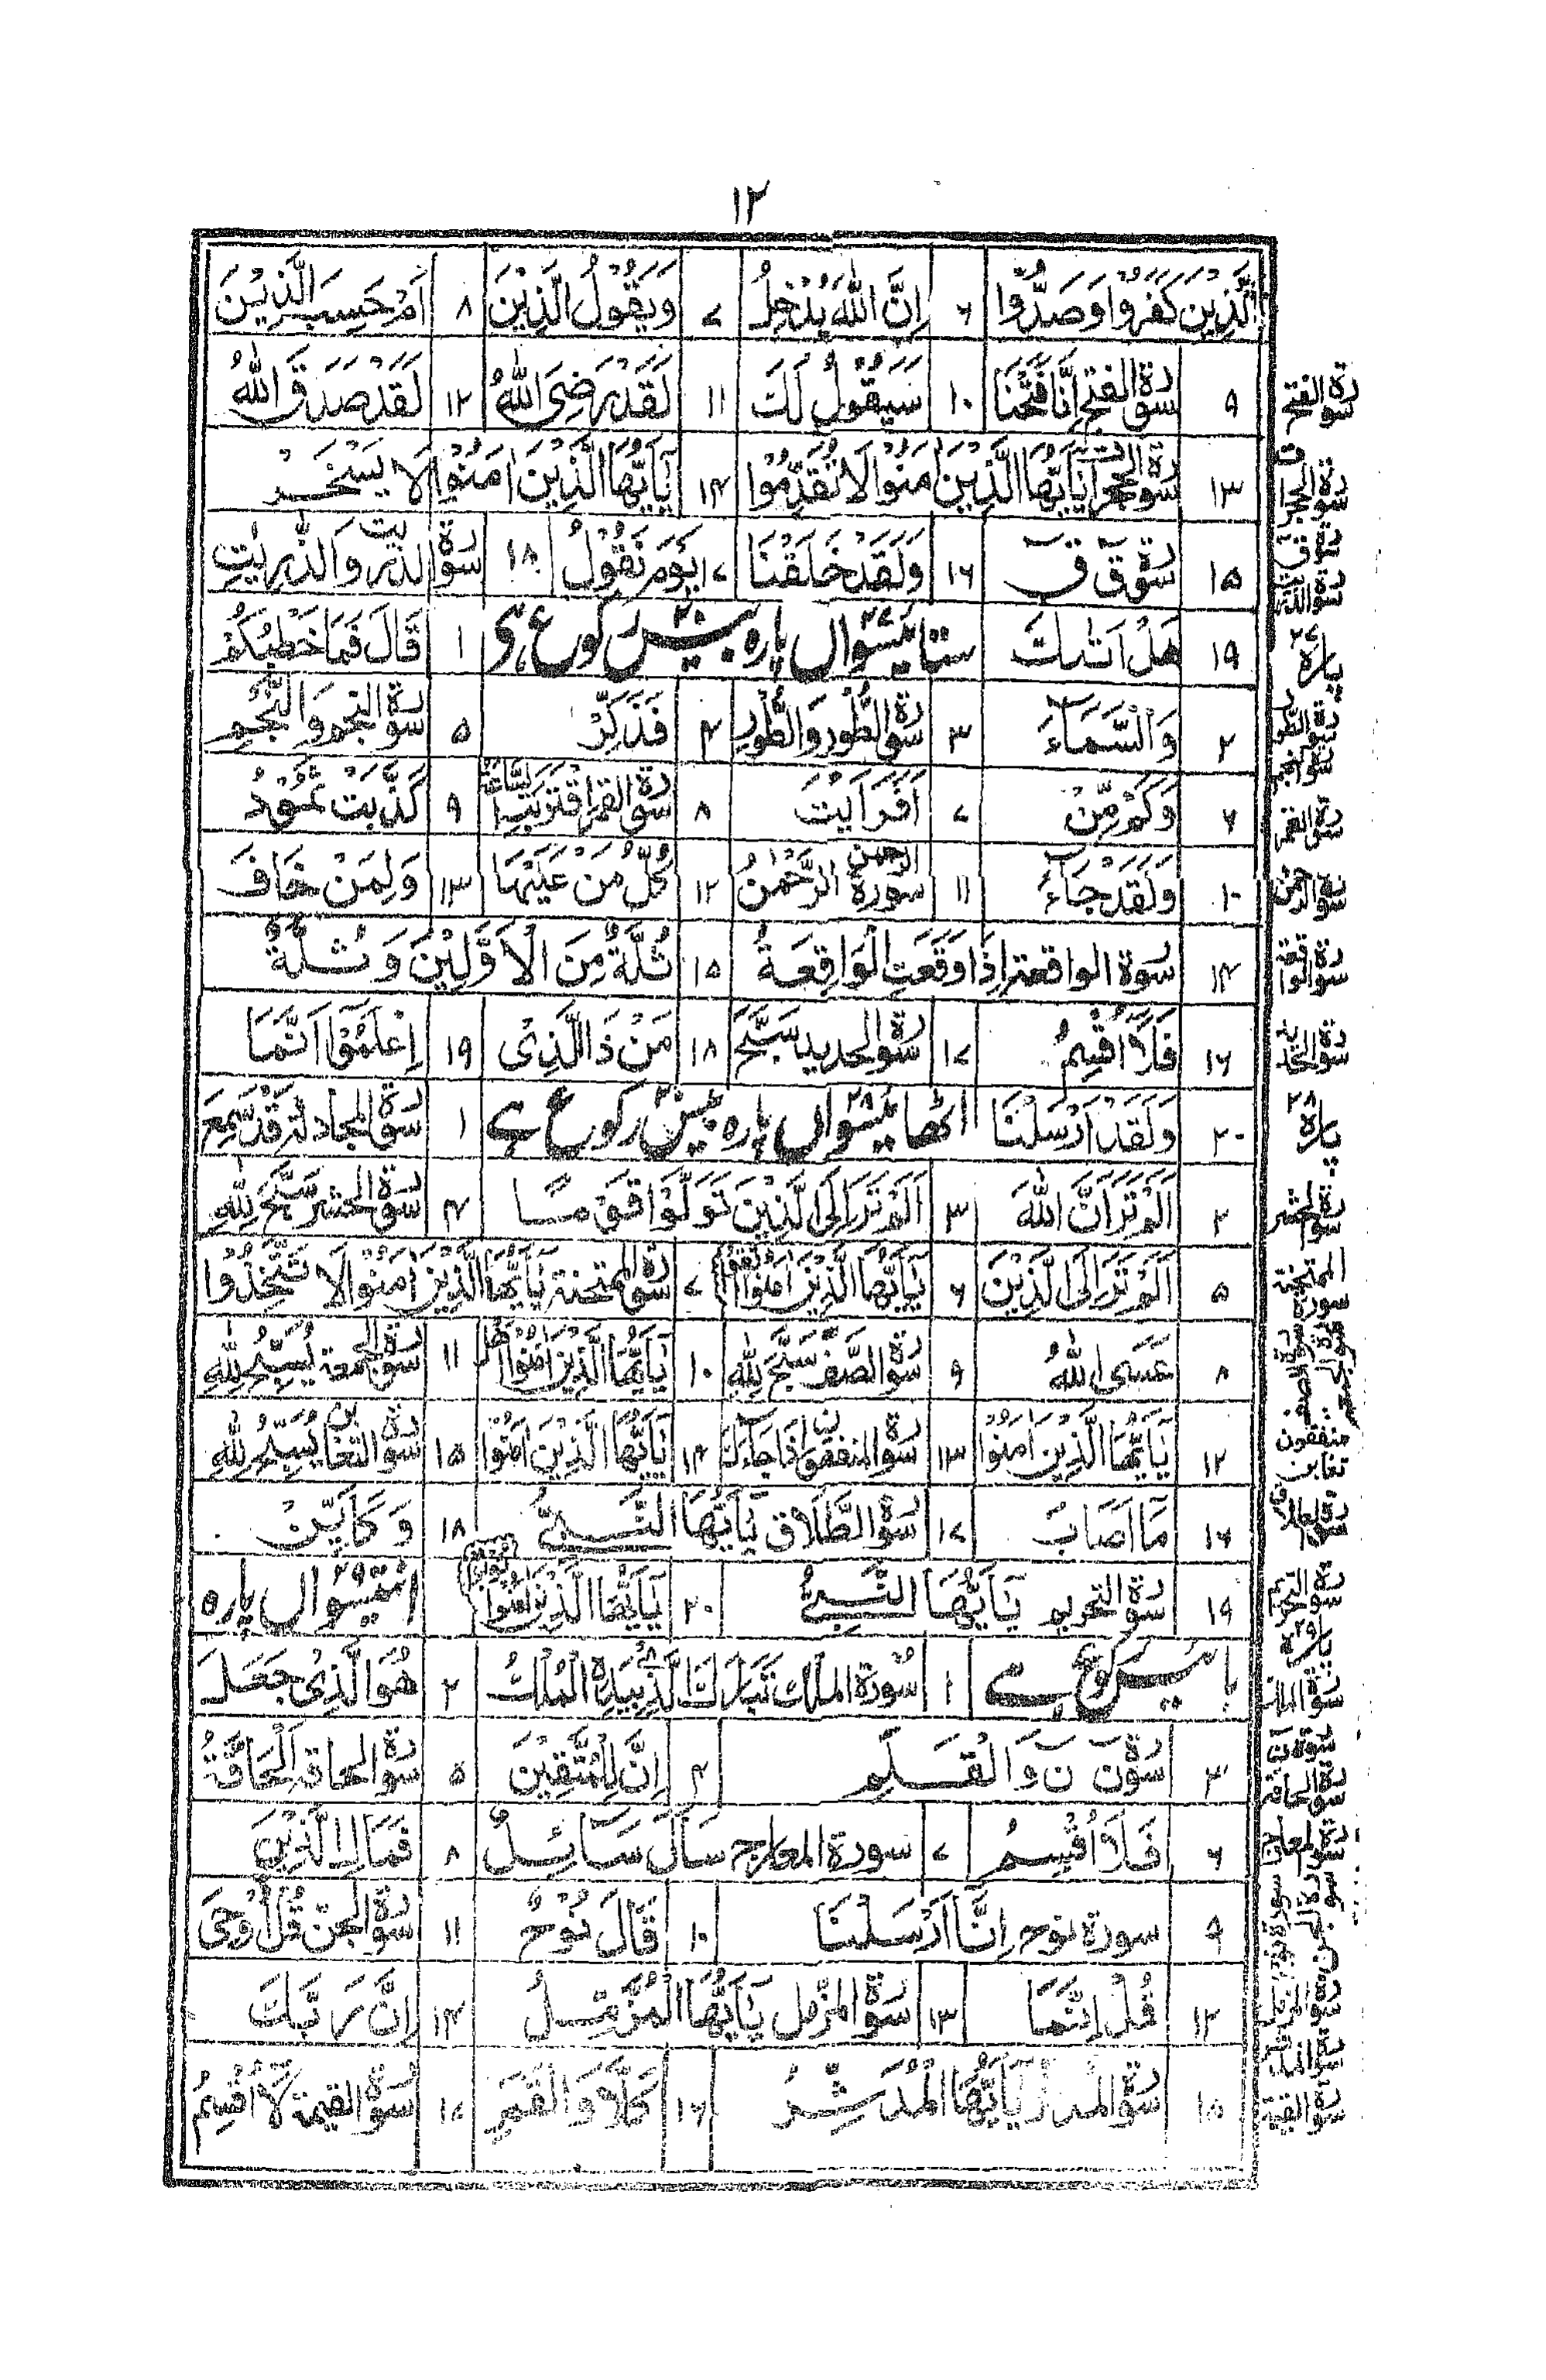 ۱۲
الَّذِيْنَ كَفَرُوْا وَصَدُّوْا ۶ اِنَّ اللهَ يُدْخِلُ ۷ وَيَقُوْلُ الَّذِيْنَ ۸ اَمْ حَسِبَ الَّذِيْنَ
سورة الفتح ۹ سورة الفتح اِنَّا فَتَحْنَا ۱۰ سَيَقُوْلُ لَكَ ۱۱ لَقَدْ رَضِىَ اللهُ ۱۲ لَقَدْ صَدَقَ اللهُ
سورة الحجرات ۱۳ سورة الحجرات يٰاَيُّهَا الَّذِيْنَ اٰمَنُوْا لَا تُقَدِّمُوْا ۱۴ يٰاَيُّهَا الَّذِيْنَ اٰمَنُوْا لَا يَسْخَرْ
سورة ق سورة الذريت ۱۵ سورة ق ق ۱۶ وَلَقَدْ خَلَقْنَا ۱۷ يَوْمَ نَقُوْلُ ۱۸ سورة الذريت وَالذّٰرِيٰتِ
پاره ۲۷ ۱۹ هَلْ اَتٰىكَ ستائيسواں ۲۷ پاره بيس ۲۰ ركوع ہے ۱ قَالَ فَمَا خَطْبُكُمْ
سورة الطور سورة النجم ۲ وَالسَّمَآءَ ۳ سورة الطور وَالطُّوْرِ ۴ فَذَكِّرْ ۵ سورة النجم وَالنَّجْمِ
سورة القمر ۶ وَكَمْ مِّنْ ۷ اَفَرَاَيْتَ ۸ سورة القمر اقْتَرَبَتِ السَّاعَةُ ۹ كَذَّبَتْ ثَمُوْدُ
سورة الرحمن ۱۰ وَلَقَدْ جَآءَ ۱۱ سورة الرحمن اَلرَّحْمٰنُ ۱۲ كُلُّ مَنْ عَلَيْهَا ۱۳ وَلِمَنْ خَافَ
سورة الواقعة ۱۴ سورة الواقعة اِذَا وَقَعَتِ الْوَاقِعَةُ ۱۵ ثُلَّةٌ مِّنَ الْاَوَّلِيْنَ وَثُلَّةٌ
سورة الحديد ۱۶ فَلَا اُقْسِمُ ۱۷ سورة الحديد سَبَّحَ ۱۸ مَنْ ذَا الَّذِىْ ۱۹ اِعْلَمُوْا اَنَّمَا
پاره ۲۸ ۲۰ وَلَقَدْ اَرْسَلْنَا اٹھائيسواں ۲۸ پاره بيس ۲۰ ركوع ہے ۱ سورة المجادلة قَدْ سَمِعَ
سورة الحشر ۲ اَلَمْ تَرَ اَنَّ اللهَ ۳ اَلَمْ تَرَ اِلَى الَّذِيْنَ تَوَلَّوْا قَوْمًا ۴ سورة الحشر سَبَّحَ لِلّٰهِ
سورة الممتحنة ۵ اَلَمْ تَرَ اِلَى الَّذِيْنَ ۶ يٰاَيُّهَا الَّذِيْنَ اٰمَنُوا اتَّقُوا ۷ سورة الممتحنة يٰاَيُّهَا الَّذِيْنَ اٰمَنُوْا لَا تَتَّخِذُوْا
سورة الصف سورة الجمعة ۸ عَسَى اللهُ ۹ سورة الصف سَبَّحَ لِلّٰهِ ۱۰ يٰاَيُّهَا الَّذِيْنَ اٰمَنُوْا هَلْ ۱۱ سورة الجمعة يُسَبِّحُ لِلّٰهِ
منفقون تغابن ۱۲ يٰاَيُّهَا الَّذِيْنَ اٰمَنُوْا ۱۳ سورة المنفقون اِذَا جَآءَكَ ۱۴ يٰاَيُّهَا الَّذِيْنَ اٰمَنُوْا ۱۵ سورة التغابن يُسَبِّحُ لِلّٰهِ
سورة الطلاق ۱۶ مَا اَصَابَ ۱۷ سورة الطَّلَاق يٰاَيُّهَا النَّبِىُّ ۱۸ وَكَاَيِّنْ
سورة التحريم ۱۹ سورة التحريم يٰاَيُّهَا النَّبِىُّ ۲۰ يٰاَيُّهَا الَّذِيْنَ اٰمَنُوْا تُوْبُوْا انتيسواں ۲۹ پاره
پاره ۲۹ سورة الملك بائيس ركوع ہے ۱ سورة الملك تَبَارَكَ الَّذِىْ بِيَدِهِ الْمُلْكُ ۲ هُوَ الَّذِىْ جَعَلَ
سورة ن سورة الحاقة ۳ سورة ن ن وَالْقَلَمِ ۴ اِنَّ لِلْمُتَّقِيْنَ ۵ سورة الحاقة اَلْحَاقَّةُ
سورة المعارج ۶ فَلَا اُقْسِمُ ۷ سورة المعارج سَاَلَ سَائِلٌ ۸ فَمَالِ الَّذِيْنَ
سورة نوح سورة الجن ۹ سورة نوح اِنَّا اَرْسَلْنَا ۱۰ قَالَ نُوْحٌ ۱۱ سورة الجن قُلْ اُوْحِىَ
سورة المزمل ۱۲ قُلْ اِنَّمَا ۱۳ سورة المزمل يٰاَيُّهَا الْمُزَّمِّلُ ۱۴ اِنَّ رَبَّكَ
سورة المدثر سورة القيمة ۱۵ سورة المدثر يٰاَيُّهَا الْمُدَّثِّرُ ۱۶ كَلَّا وَالْقَمَرِ ۱۷ سورة القيمة لَا اُقْسِمُ